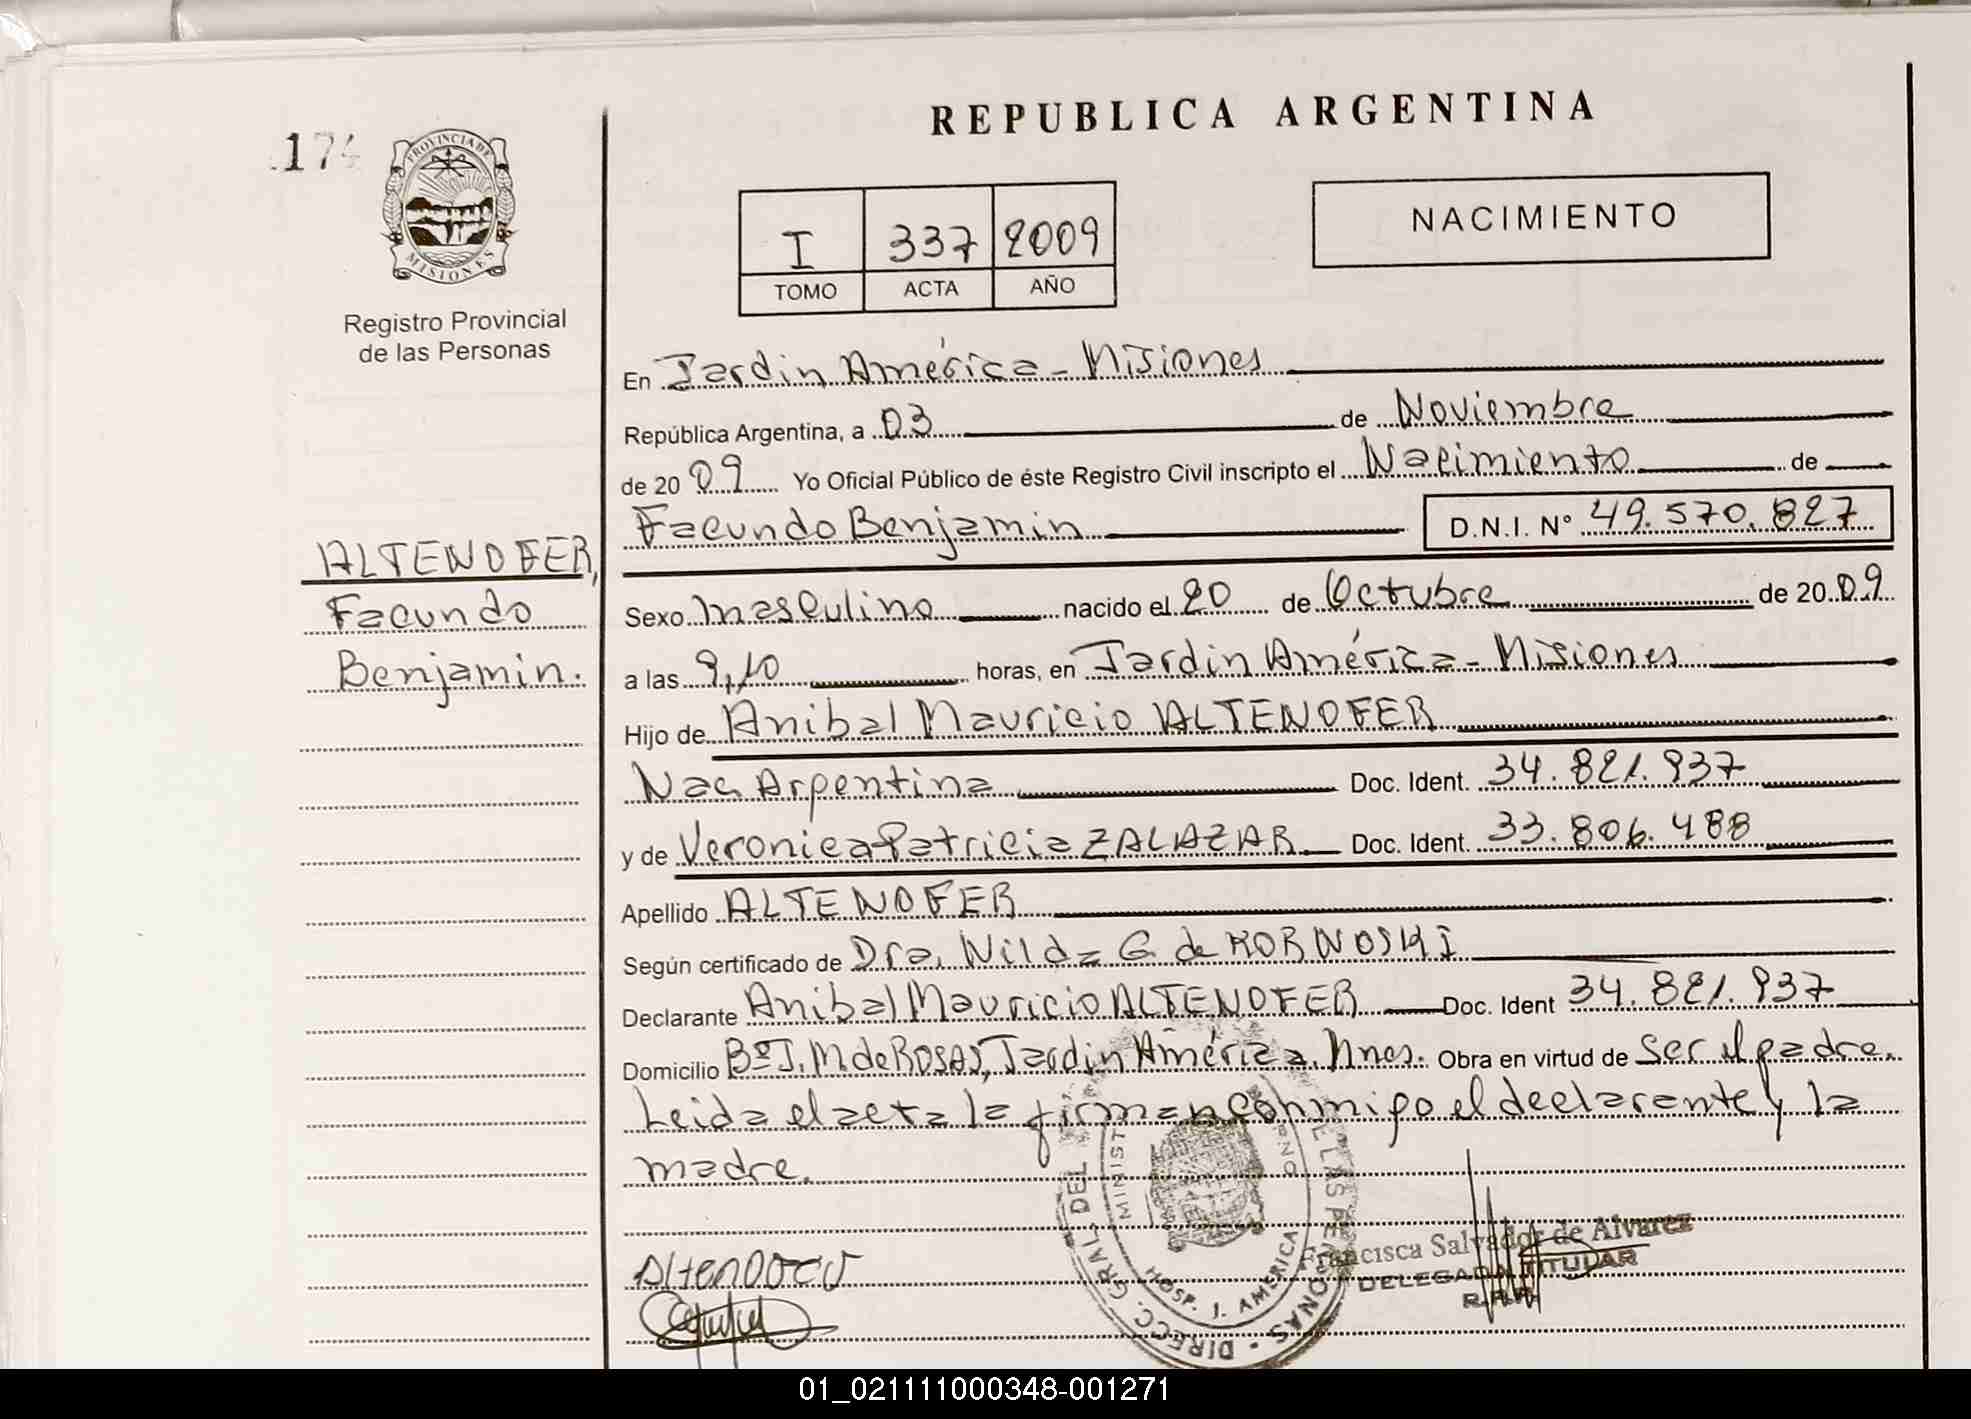 REPUBLICA ARGENTINA
PROVINCIA DE
MISIONES
Registro Provincial
de las Personas
I 337 2009
TOMO ACTA AÑO
NACIMIENTO
En Jardin América - Misiones
República Argentina, a 03 de Noviembre
de 20 09 Yo Oficial Público de éste Registro Civil inscripto el Nacimiento de
Facundo Benjamin D.N.I. N° 49.570.827
ALTENOFER,
Facundo
Benjamin.
Sexo Masculino nacido el 20 de Octubre de 20 09
a las 9,10 horas, en Jardin América - Misiones
Hijo de Anibal Mauricio ALTENOFER
Nac. Argentina Doc. Ident. 34.821.937
y de Veronica Patricia ZALAZAR Doc. Ident. 33.806.488
Apellido ALTENOFER
Según certificado de Dra. Nilda G. de KORNOSKI
Declarante Anibal Mauricio ALTENOFER Doc. Ident 34.821.937
Domicilio Bº J. M. de ROSAS, Jardin América. Mnes. Obra en virtud de ser el padre.
Leida el acta la firman conmigo el declarante y la
madre.
DIRECC. GRAL. DEL
DE LAS PERSONAS
MINIST
HOSP. J. AMERICA
Francisca Salvador de Alvarez
DELEGADA TITULAR
R.P.P.
01_021111000348-001271